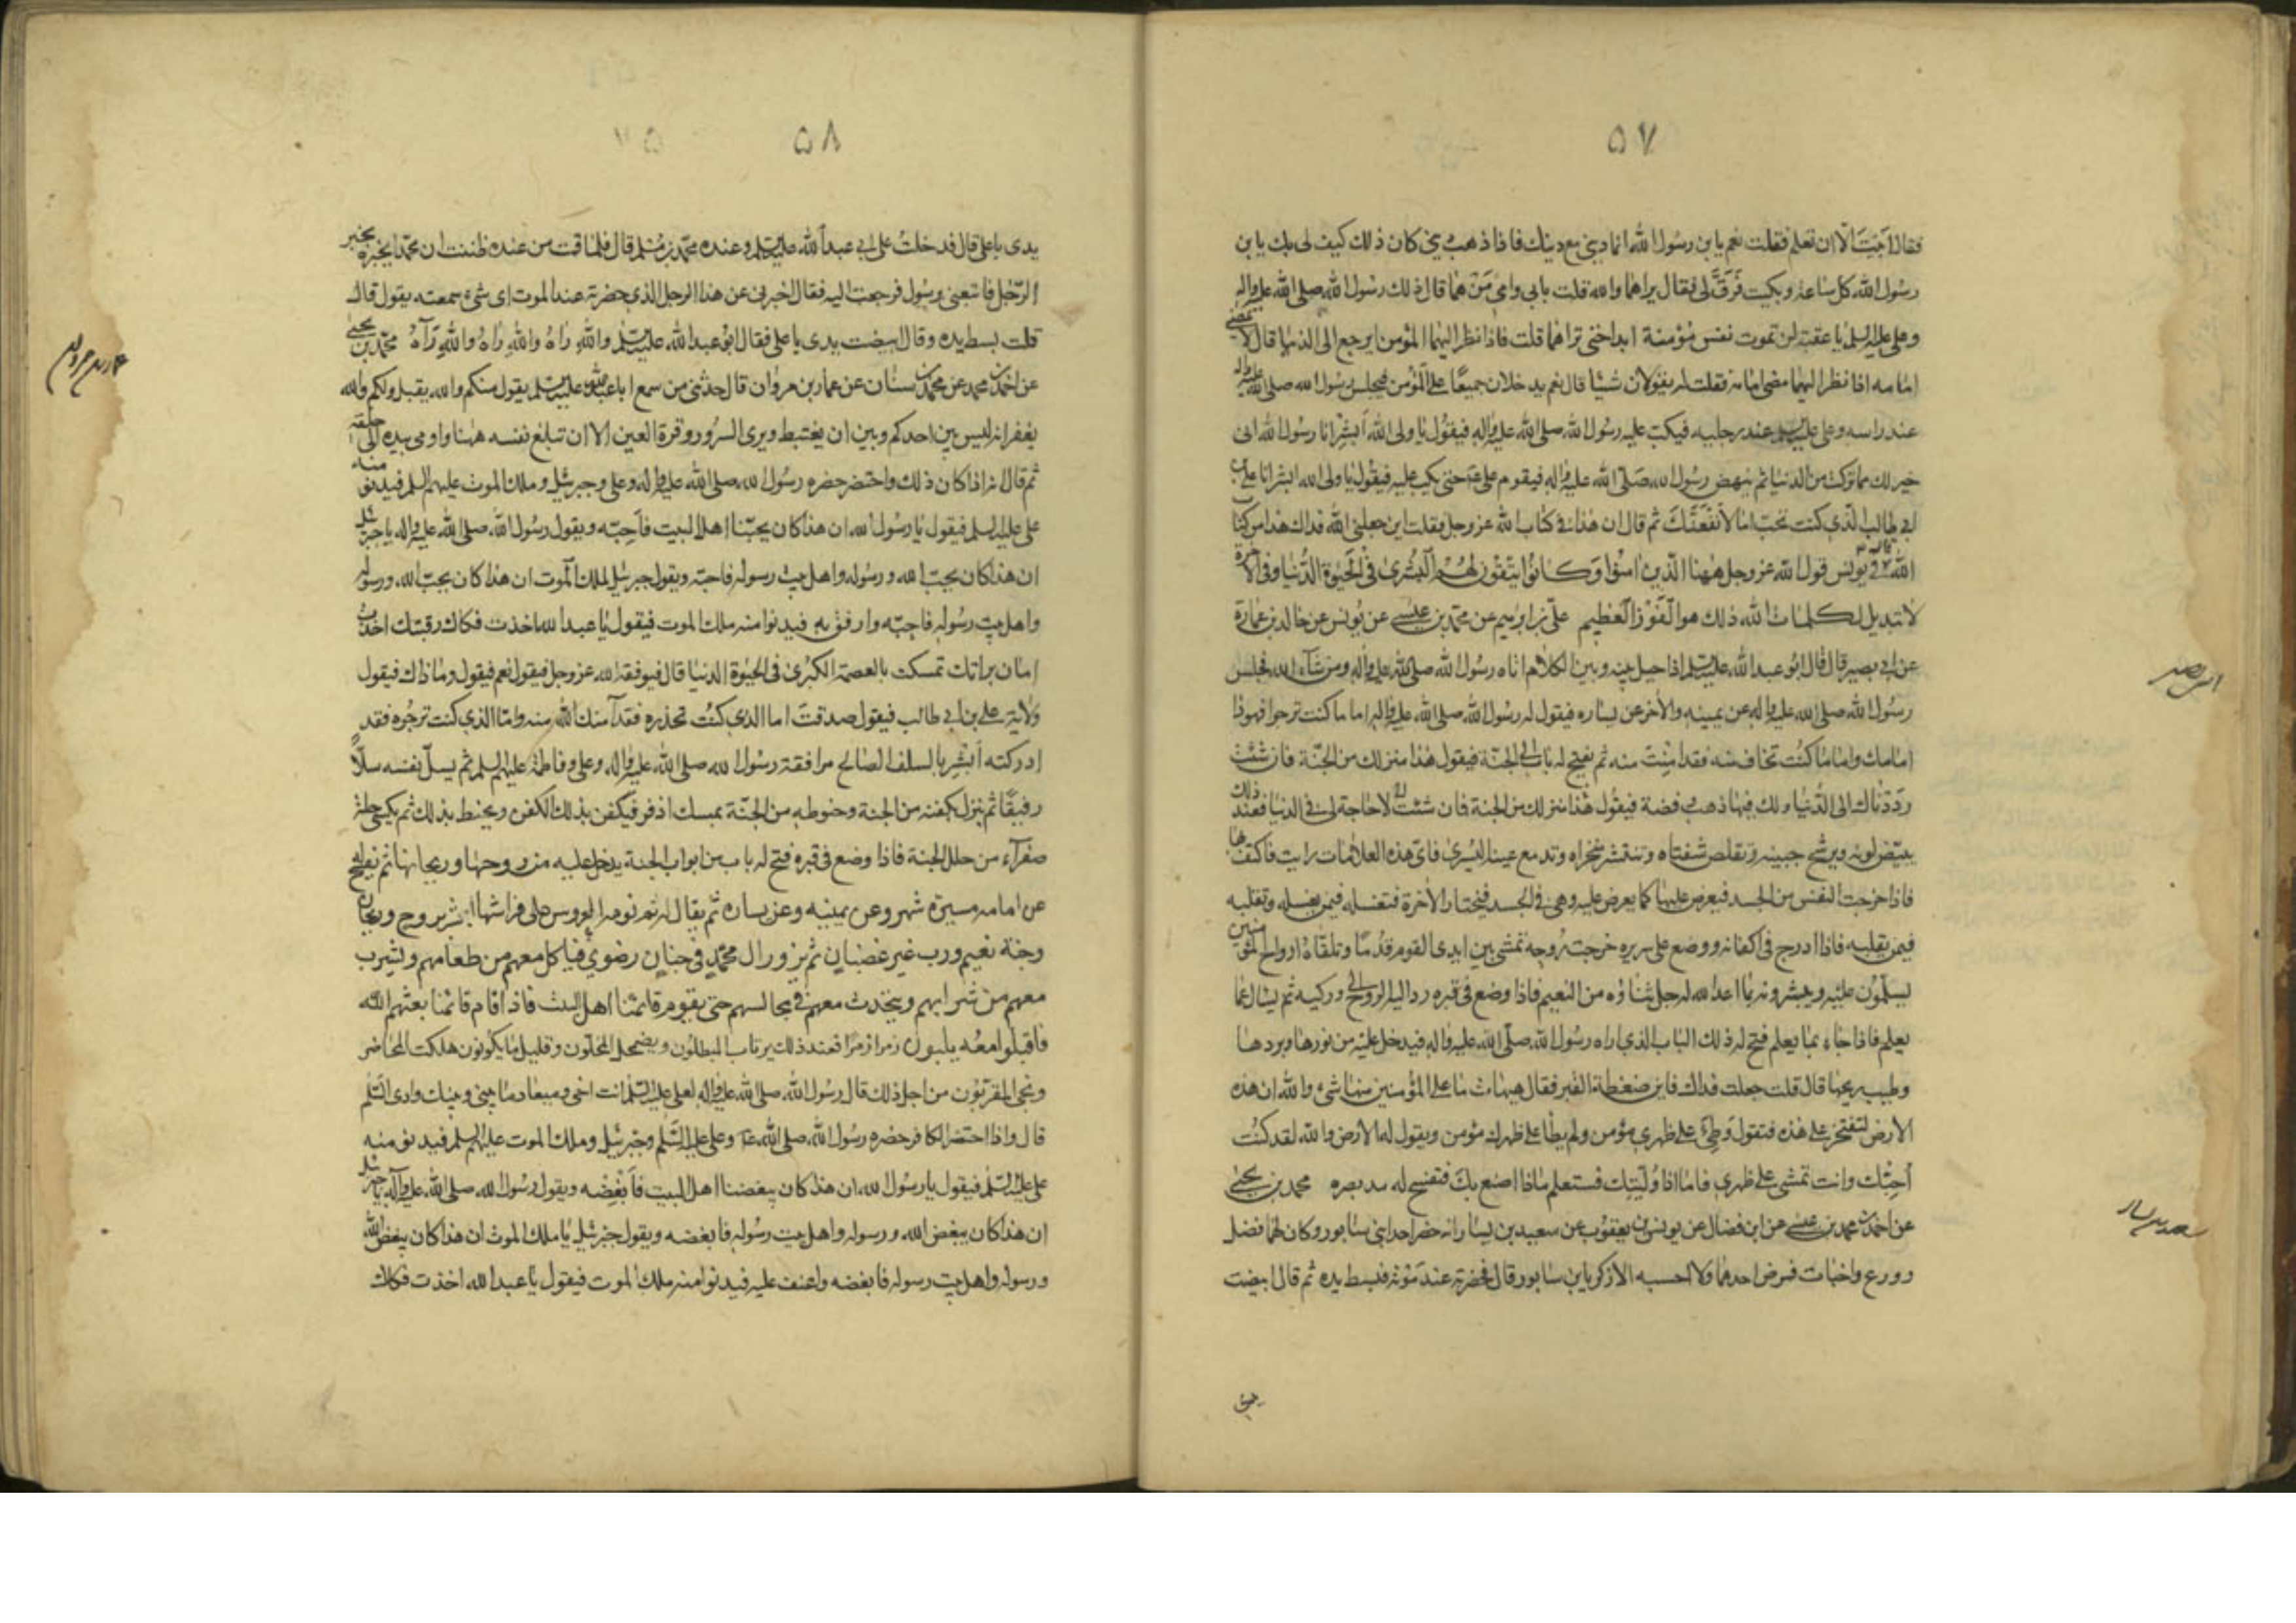 ٥٧
فقال ابيت الا ان تعلم فقلت نعم يا بن رسول الله انما ديني مع دينك فاذا ذهب ديني كان ذلك كيف لي بك يا بن
رسول الله كل ساعة وبكيت فرق لي فقال يراهما والله قلت بابي وامي من هما قال ذلك رسول الله صلى الله عليه واله
وعلي عليه السلم يا عقبة لن تموت نفس مؤمنة ابدا حتى تراهما قلت فاذا نظر اليهما المؤمن ايرجع الى الدنيا قال لا يمضي
امامه اذا نظر اليهما مضى امامه فقلت له يقولان شيئا قال نعم يدخلان جميعا على المؤمن فيجلس رسول الله صلى الله عليه واله
عند راسه وعلي عليه السلم عند رجليه فيكب عليه رسول الله صلى الله عليه واله فيقول يا ولي الله ابشر انا رسول الله اني
خير لك مما تركت من الدنيا ثم ينهض رسول الله صلى الله عليه واله فيقوم علي ع حتى يكب عليه فيقول يا ولي الله ابشر انا علي بن
ابي طالب الذي كنت تحب اما لانفعنك ثم قال ان هذا في كتاب الله عز وجل فقلت اين جعلني الله فداك هذا من كتاب
الله قال في يونس قول الله عز وجل ههنا الذين امنوا وكانوا يتقون لهم البشرى في الحيوة الدنيا وفي الاخرة
لا تبديل لكلمات الله ذلك هو الفوز العظيم علي بن ابرهيم عن محمد بن عيسى عن يونس عن خالد بن عمارة
عن ابي بصير قال قال ابو عبد الله عليه السلم اذا حيل بينه وبين الكلام اتاه رسول الله صلى الله عليه واله ومن شاء الله فجلس
رسول الله صلى الله عليه واله عن يمينه والاخر عن يساره فيقول له رسول الله صلى الله عليه واله اما ما كنت ترجوا فهو ذا
امامك واما ما كنت تخاف منه فقد امنت منه ثم يفتح له باب الى الجنة فيقول هذا منزلك من الجنة فان شئت
رددناك الى الدنيا ولك فيها ذهب وفضة فيقول لا حاجة لي في الدنيا فعند ذلك
يبيض لونه ويرشح جبينه وتقلص شفتاه وتنتشر منخراه وتدمع عينه اليسرى فاي هذه العلامات رايت فاكتف بها
فاذا خرجت النفس من الجسد فيعرض عليها كما يعرض عليه وهي في الجسد فيختار الاخرة فتغسله فيمن يغسله وتقلبه
فيمن يقلبه فاذا ادرج في اكفانه ووضع على سريره خرجت روحه تمشي بين ايدي القوم قدما وتلقاه ارواح المؤمنين
يسلمون عليه ويبشرونه بما اعد الله له جل ثناؤه من النعيم فاذا وضع في قبره رد اليه الروح الى وركيه ثم يسال عما
يعلم فاذا جاء بما يعلم فتح له ذلك الباب الذي اراه رسول الله صلى الله عليه واله فيدخل عليه من نورها وبردها
وطيب ريحها قال قلت جعلت فداك فاين ضغطة القبر فقال هيهات ما على المؤمنين منها شيء والله ان هذه
الارض لتفتخر على هذه فتقول وطئ على ظهري مؤمن ولم يطا على ظهرك مؤمن ويقول له الارض والله لقد كنت
احبك وانت تمشي على ظهري فاما اذا وليتك فستعلم ماذا اصنع بك فتفسح له مد بصره محمد بن يحيى
عن احمد بن محمد بن عيسى عن ابن فضال عن يونس بن يعقوب عن سعيد بن يسار انه حضر احد ابني سابور وكان لهما فضل
وورع واخبات فمرض احدهما ولا احسبه الا زكريا بن سابور قال فحضرته عند موته فبسط يده ثم قال ابيضت
ابي بصير
سعيد بن يسار
٥٨
يدي يا علي قال فدخلت على ابي عبد الله عليه السلم وعنده محمد بن مسلم قال فلما قمت من عنده ظننت ان محمدا يخبره بخبر
الرجل فاتبعني برسول فرجعت اليه فقال اخبرني عن هذا الرجل الذي حضرته عند الموت اي شيء سمعته يقول قال
قلت بسط يده وقال ابيضت يدي يا علي فقال ابو عبد الله عليه السلم والله راه والله راه والله رآه محمد بن يحيى
عن احمد بن محمد عن محمد بن سنان عن عمار بن مروان قال حدثني من سمع ابا عبد الله عليه السلم يقول منكم والله يقبل ولكم والله
يغفر انه ليس بين احدكم وبين ان يغتبط ويرى السرور وقرة العين الا ان تبلغ نفسه ههنا واومى بيده الى حلقه
ثم قال انه اذا كان ذلك واحتضر حضره رسول الله صلى الله عليه واله وعلي وجبرئيل وملك الموت عليهم السلم فيدنو منه
علي عليه السلم فيقول يا رسول الله ان هذا كان يحبنا اهل البيت فاحبه ويقول رسول الله صلى الله عليه واله يا جبرئيل
ان هذا كان يحب الله ورسوله واهل بيت رسوله فاحبه ويقول جبرئيل لملك الموت ان هذا كان يحب الله ورسوله
واهل بيت رسوله فاحبه وارفق به فيدنوا منه ملك الموت فيقول يا عبد الله اخذت فكاك رقبتك اخذت
امان براتك تمسكت بالعصمة الكبرى في الحيوة الدنيا قال فيوفقه الله عز وجل فيقول نعم فيقول وما ذاك فيقول
ولاية علي بن ابي طالب فيقول صدقت اما الذي كنت تحذره فقد آمنك الله منه واما الذي كنت ترجوه فقد
ادركته ابشر بالسلف الصالح مرافقة رسول الله صلى الله عليه واله وعلي وفاطمة عليهم السلم ثم يسل نفسه سلا
رفيقا ثم ينزل بكفنه من الجنة وحنوطه من الجنة بمسك اذفر فيكفن بذلك الكفن ويحنط بذلك ثم يكسى حلة
صفرآء من حلل الجنة فاذا وضع في قبره فتح له باب من ابواب الجنة يدخل عليه من روحها وريحانها ثم يفتح له
عن امامه مسيرة شهر وعن يمينه وعن يساره ثم يقال له نم نومة العروس على فراشها ابشر بروح وريحان
وجنة نعيم ورب غير غضبان ثم يزور ال محمد في جنان رضوى فياكل معهم من طعامهم ويشرب
معهم من شرابهم ويتحدث معهم في مجالسهم حتى يقوم قائمنا اهل البيت فاذا قام قائمنا بعثهم الله
فاقبلوا معه يلبون زمرا زمرا فعند ذلك يرتاب المبطلون ويضمحل المحلون وقليل ما يكونون هلكت المحاضر
ونجى المقربون من اجل ذلك قال رسول الله صلى الله عليه واله لعلي عليه السلم انت اخي وميعاد ما بيني وبينك وادي السلم
قال واذا احتضر الكافر حضره رسول الله صلى الله عليه وعلي عليه السلم وجبرئيل وملك الموت عليهم السلم فيدنو منه
علي عليه السلم فيقول يا رسول الله ان هذا كان يبغضنا اهل البيت فابغضه ويقول رسول الله صلى الله عليه وآله يا جبرئيل
ان هذا كان يبغض الله ورسوله واهل بيت رسوله فابغضه ويقول جبرئيل يا ملك الموت ان هذا كان يبغض الله
ورسوله واهل بيت رسوله فابغضه واعنف عليه فيدنوا منه ملك الموت فيقول يا عبد الله اخذت فكاك
عمار بن مروان